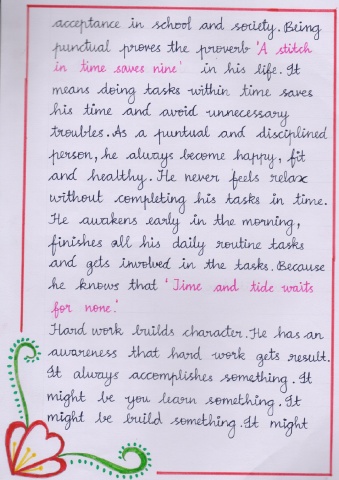 acceptance in school and society. Being
punctual proves the proverb 'A stitch
in time saves nine' in his life. It
means doing tasks within time saves
his time and avoid unnecessary
troubles. As a puntual and disciplined
person, he always become happy, fit
and healthy. He never feels relax
without completing his tasks in time.
He awakens early in the morning,
finishes all his daily routine tasks
and gets involved in the tasks. Because
he knows that 'Time and tide waits
for none.'
Hard work builds character. He has an
awareness that hard work gets result.
It always accomplishes something. It
might be you learn something. It
might be build something. It might